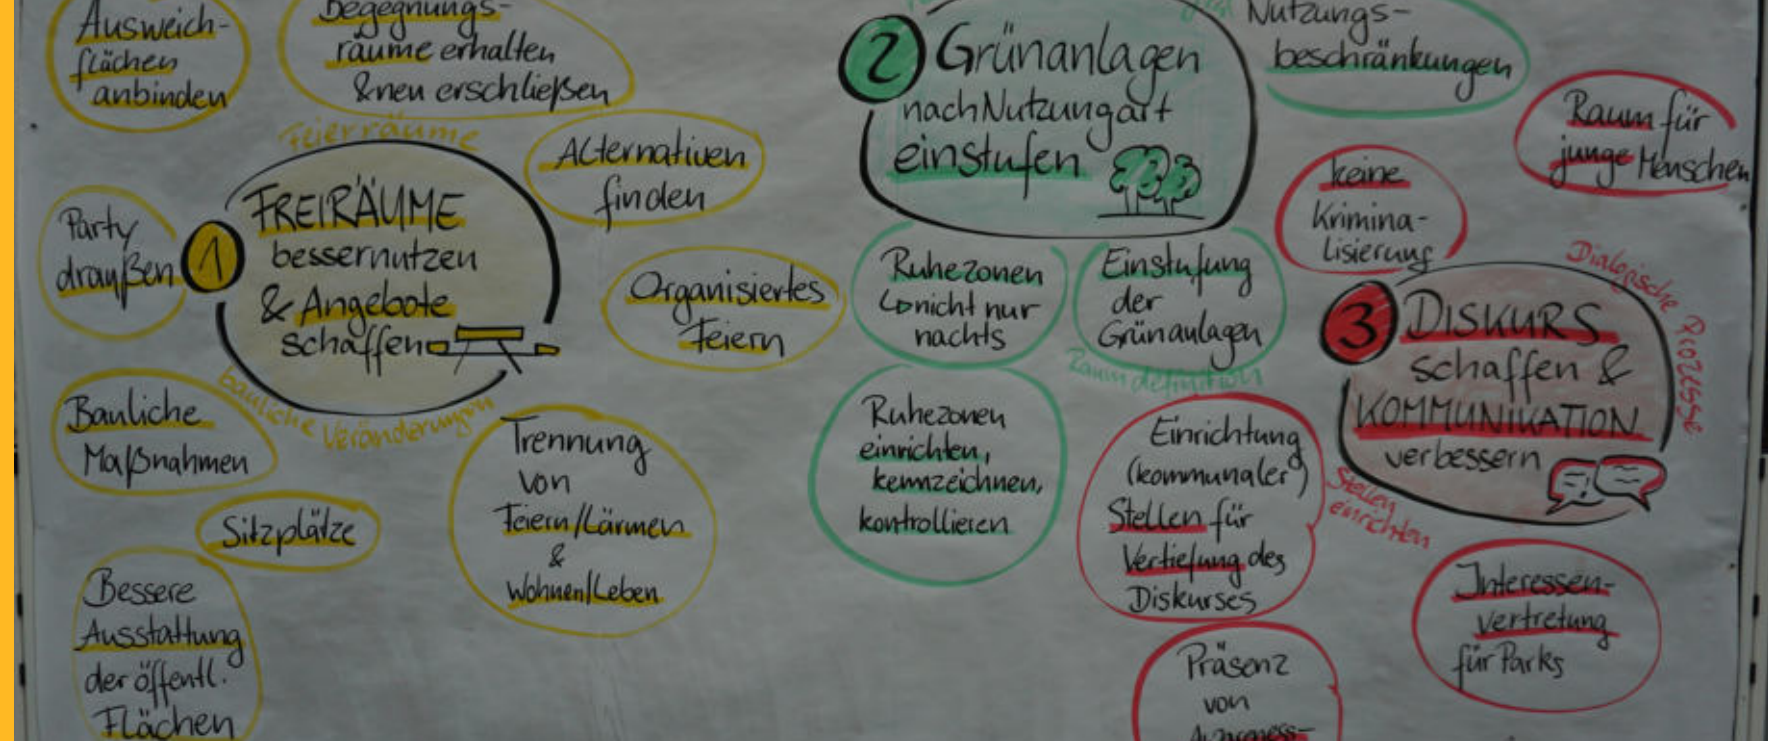 Ausweich-
flächen
anbinden
Begegnungs-
räume erhalten
& neu erschließen
Feierräume
Alternativen
finden
Party
draußen
1
FREIRÄUME
besser nutzen
& Angebote
schaffen
Organisiertes
Feiern
Bauliche
Maßnahmen
bauliche Veränderungen
Sitzplätze
Trennung
von
Feiern/Lärmen
&
Wohnen/Leben
Bessere
Ausstattung
der öffentl.
Flächen
2
Grünanlagen
nach Nutzungart
einstufen
Nutzungs-
beschränkungen
Ruhezonen
↳ nicht nur
nachts
Einstufung
der
Grünanlagen
Raumdefinition
Ruhezonen
einrichten,
kennzeichnen,
kontrollieren
Raum für
junge Menschen
keine
Krimina-
lisierung
Dialogische Prozesse
3
DISKURS
schaffen &
KOMMUNIKATION
verbessern
Stellen
einrichten
Einrichtung
(kommunaler)
Stellen für
Vertiefung des
Diskurses
Interessen-
vertretung
für Parks
Präsenz
von
Awareness-